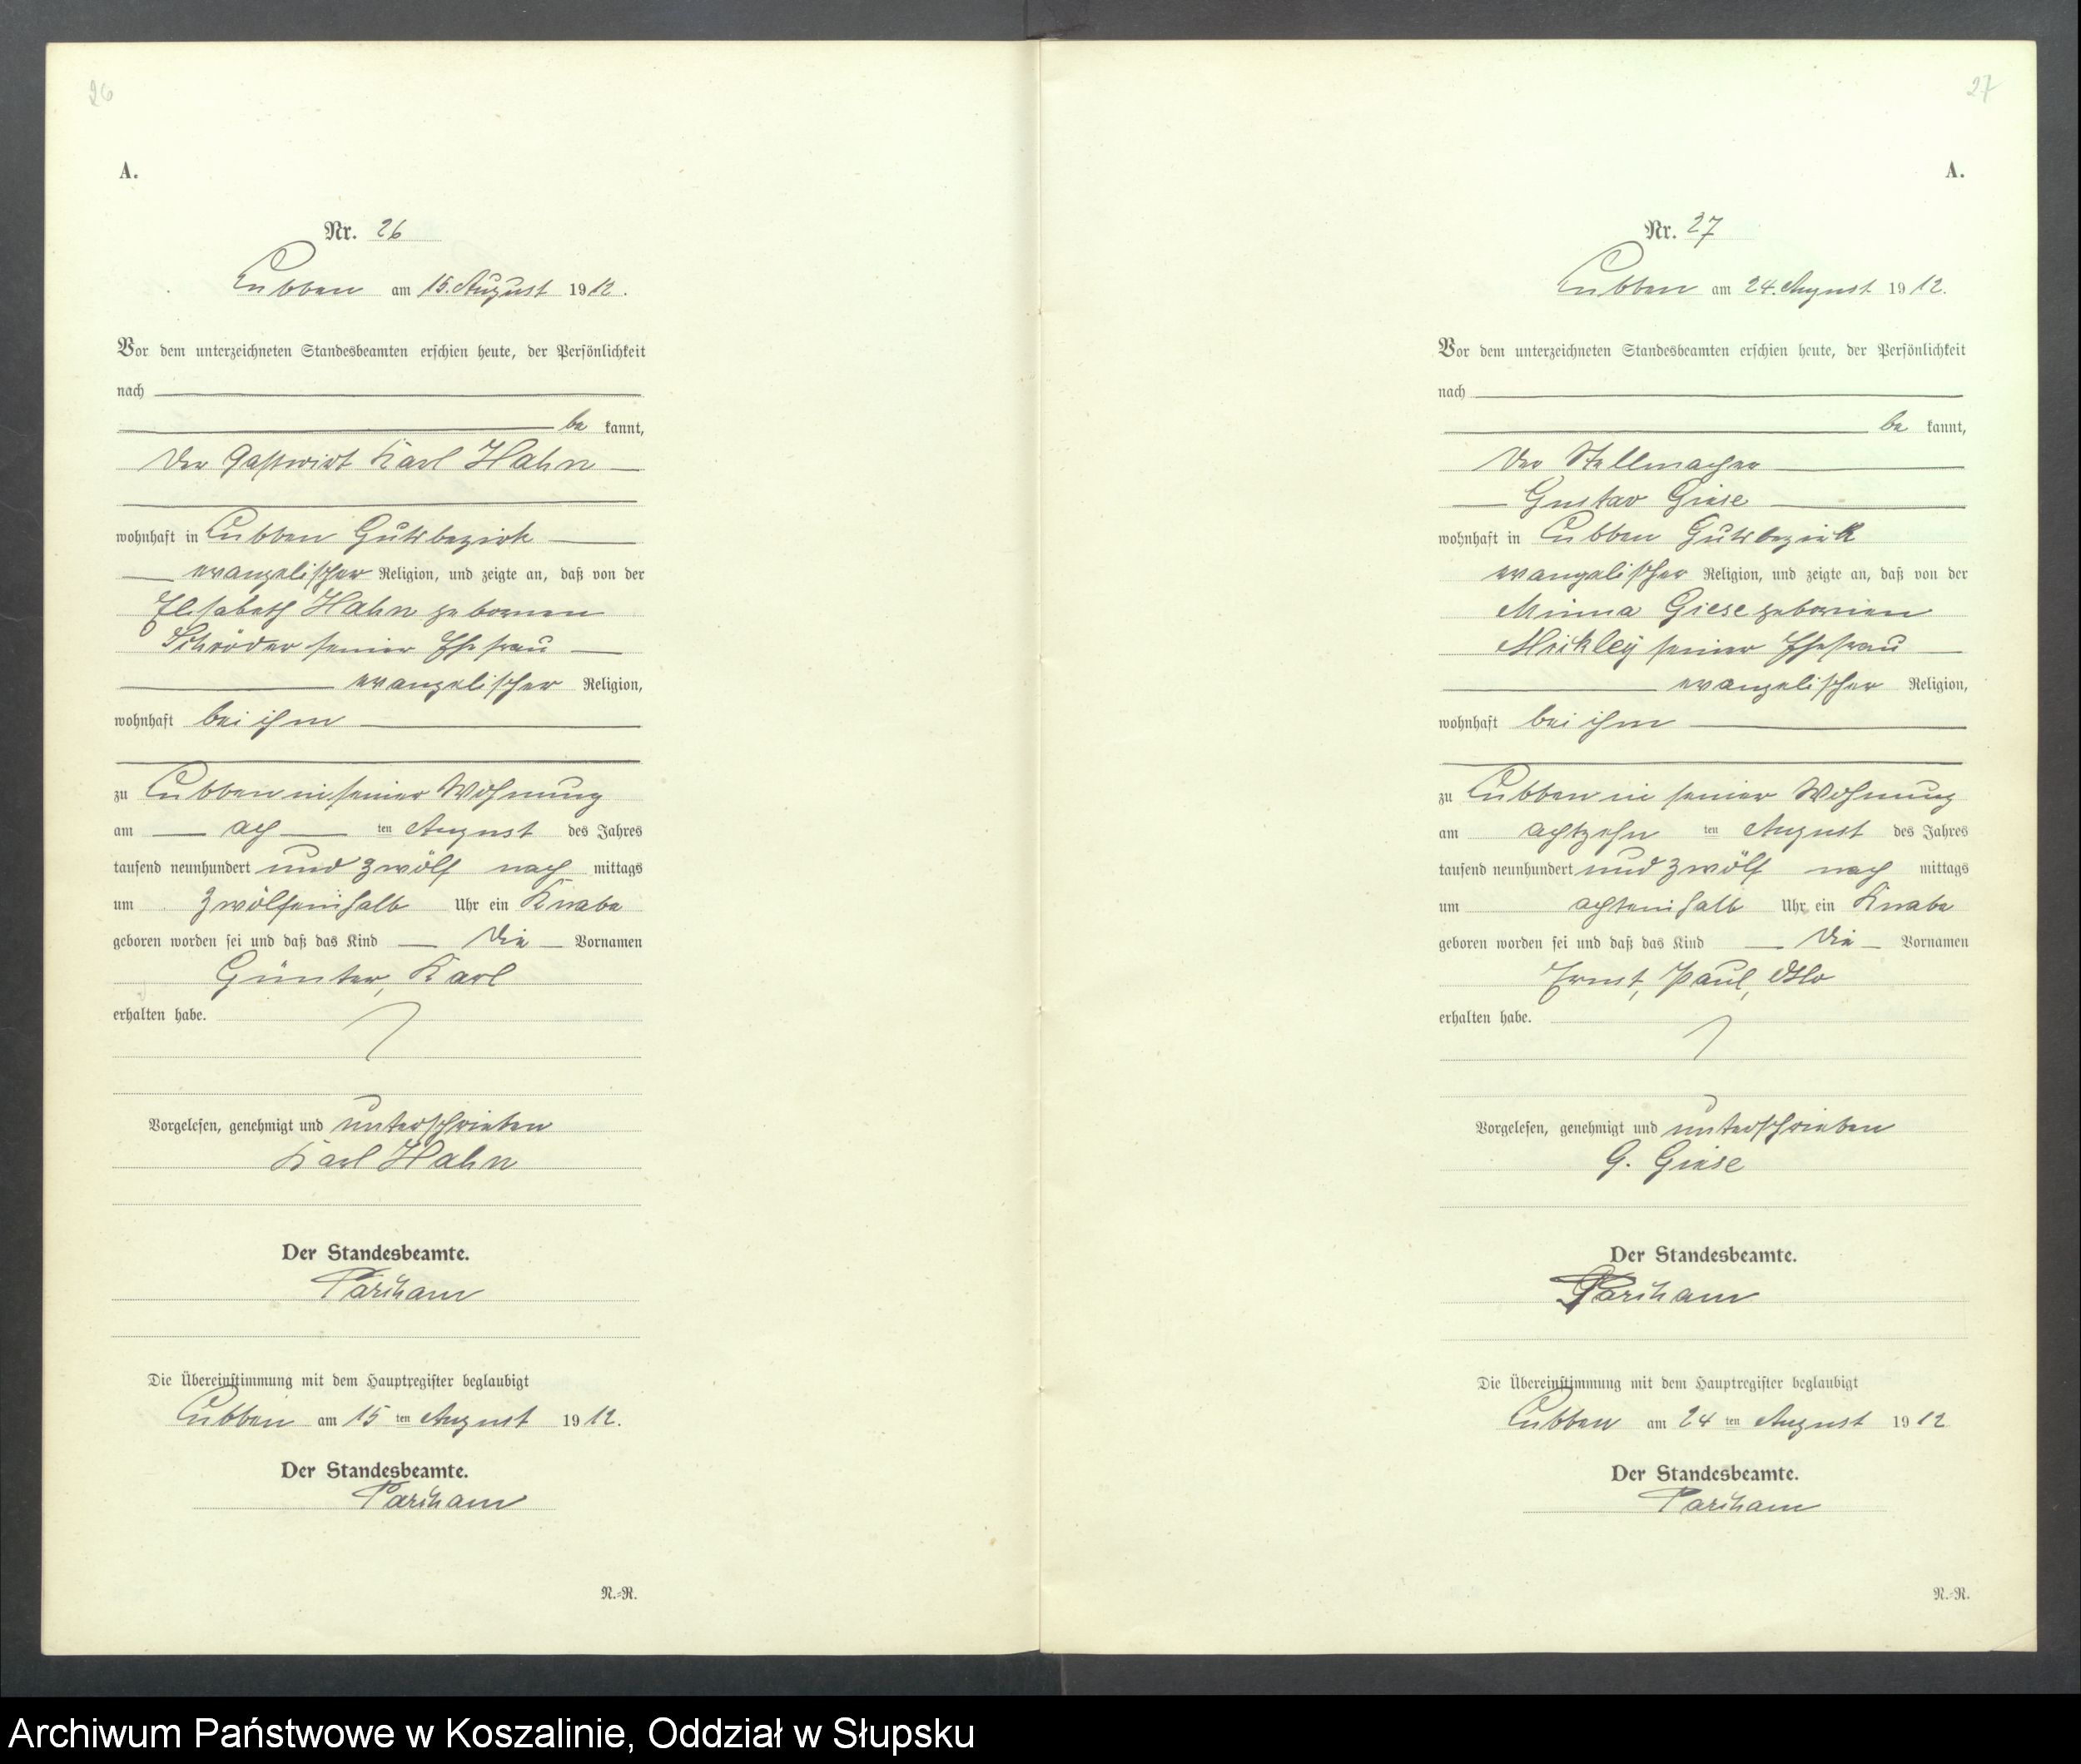 26
A.
Nr. 26
Lubben am 15. August 1912.
Vor dem unterzeichneten Standesbeamten erschien heute, der Persönlichkeit
nach
be kannt,
der Gastwirt Karl Hahn
wohnhaft in Lubben Gutsbezirk
evangelischer Religion, und zeigte an, daß von der
Elisabeth Hahn geborenen
Schröder seiner Ehefrau
evangelischer Religion,
wohnhaft bei ihm
zu Lubben in seiner Wohnung
am ach ten August des Jahres
tausend neunhundert und zwölf nach mittags
um zwölfeinhalb Uhr ein Knabe
geboren worden sei und daß das Kind die Vornamen
Günter, Karl
erhalten habe.
Vorgelesen, genehmigt und unterschrieben
Karl Hahn
Der Standesbeamte.
Die Übereinstimmung mit dem Hauptregister beglaubigt
Lubben am 15 ten August 1912.
Der Standesbeamte.
N.-R.
27
A.
Nr. 27
Lubben am 24. August 1912.
Vor dem unterzeichneten Standesbeamten erschien heute, der Persönlichkeit
nach
be kannt,
der Stellmacher
Gustav Giese
wohnhaft in Lubben Gutsbezirk
evangelischer Religion, und zeigte an, daß von der
Minna Giese geborenen
Mickley seiner Ehefrau
evangelischer Religion,
wohnhaft bei ihm
zu Lubben in seiner Wohnung
am achtzehn ten August des Jahres
tausend neunhundert und zwölf nach mittags
um achteinhalb Uhr ein Knabe
geboren worden sei und daß das Kind die Vornamen
Ernst, Paul, Otto
erhalten habe.
Vorgelesen, genehmigt und unterschrieben
G. Giese
Der Standesbeamte.
Die Übereinstimmung mit dem Hauptregister beglaubigt
Lubben am 24 ten August 1912
Der Standesbeamte.
N.-R.
Archiwum Państwowe w Koszalinie, Oddział w Słupsku